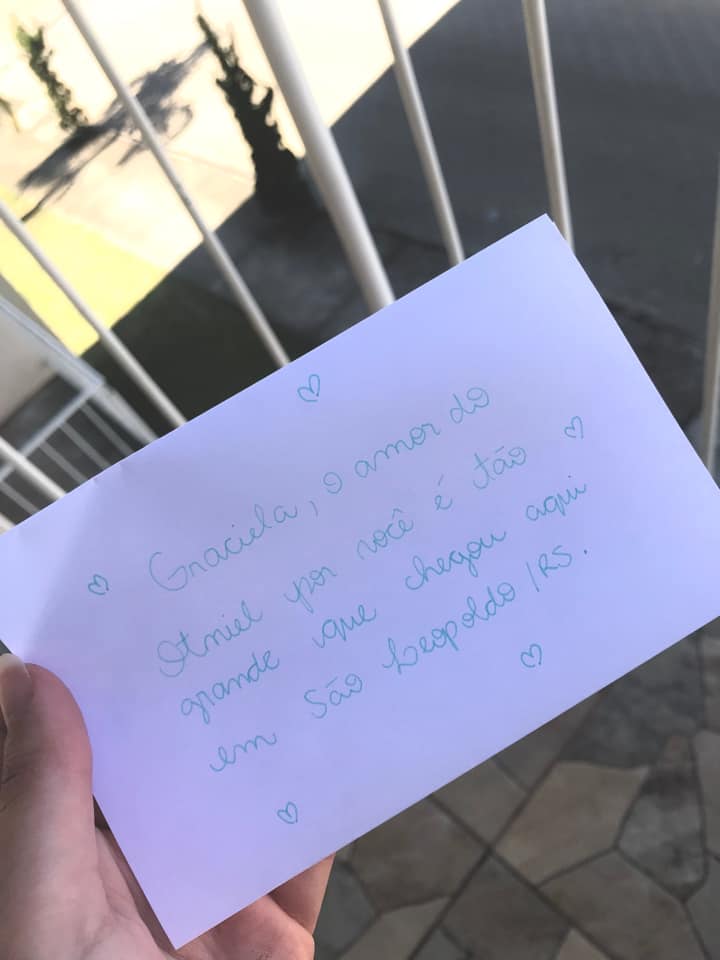 Graciela, o amor do
Otniel por você é tão
grande que chegou aqui
em São Leopoldo/RS.